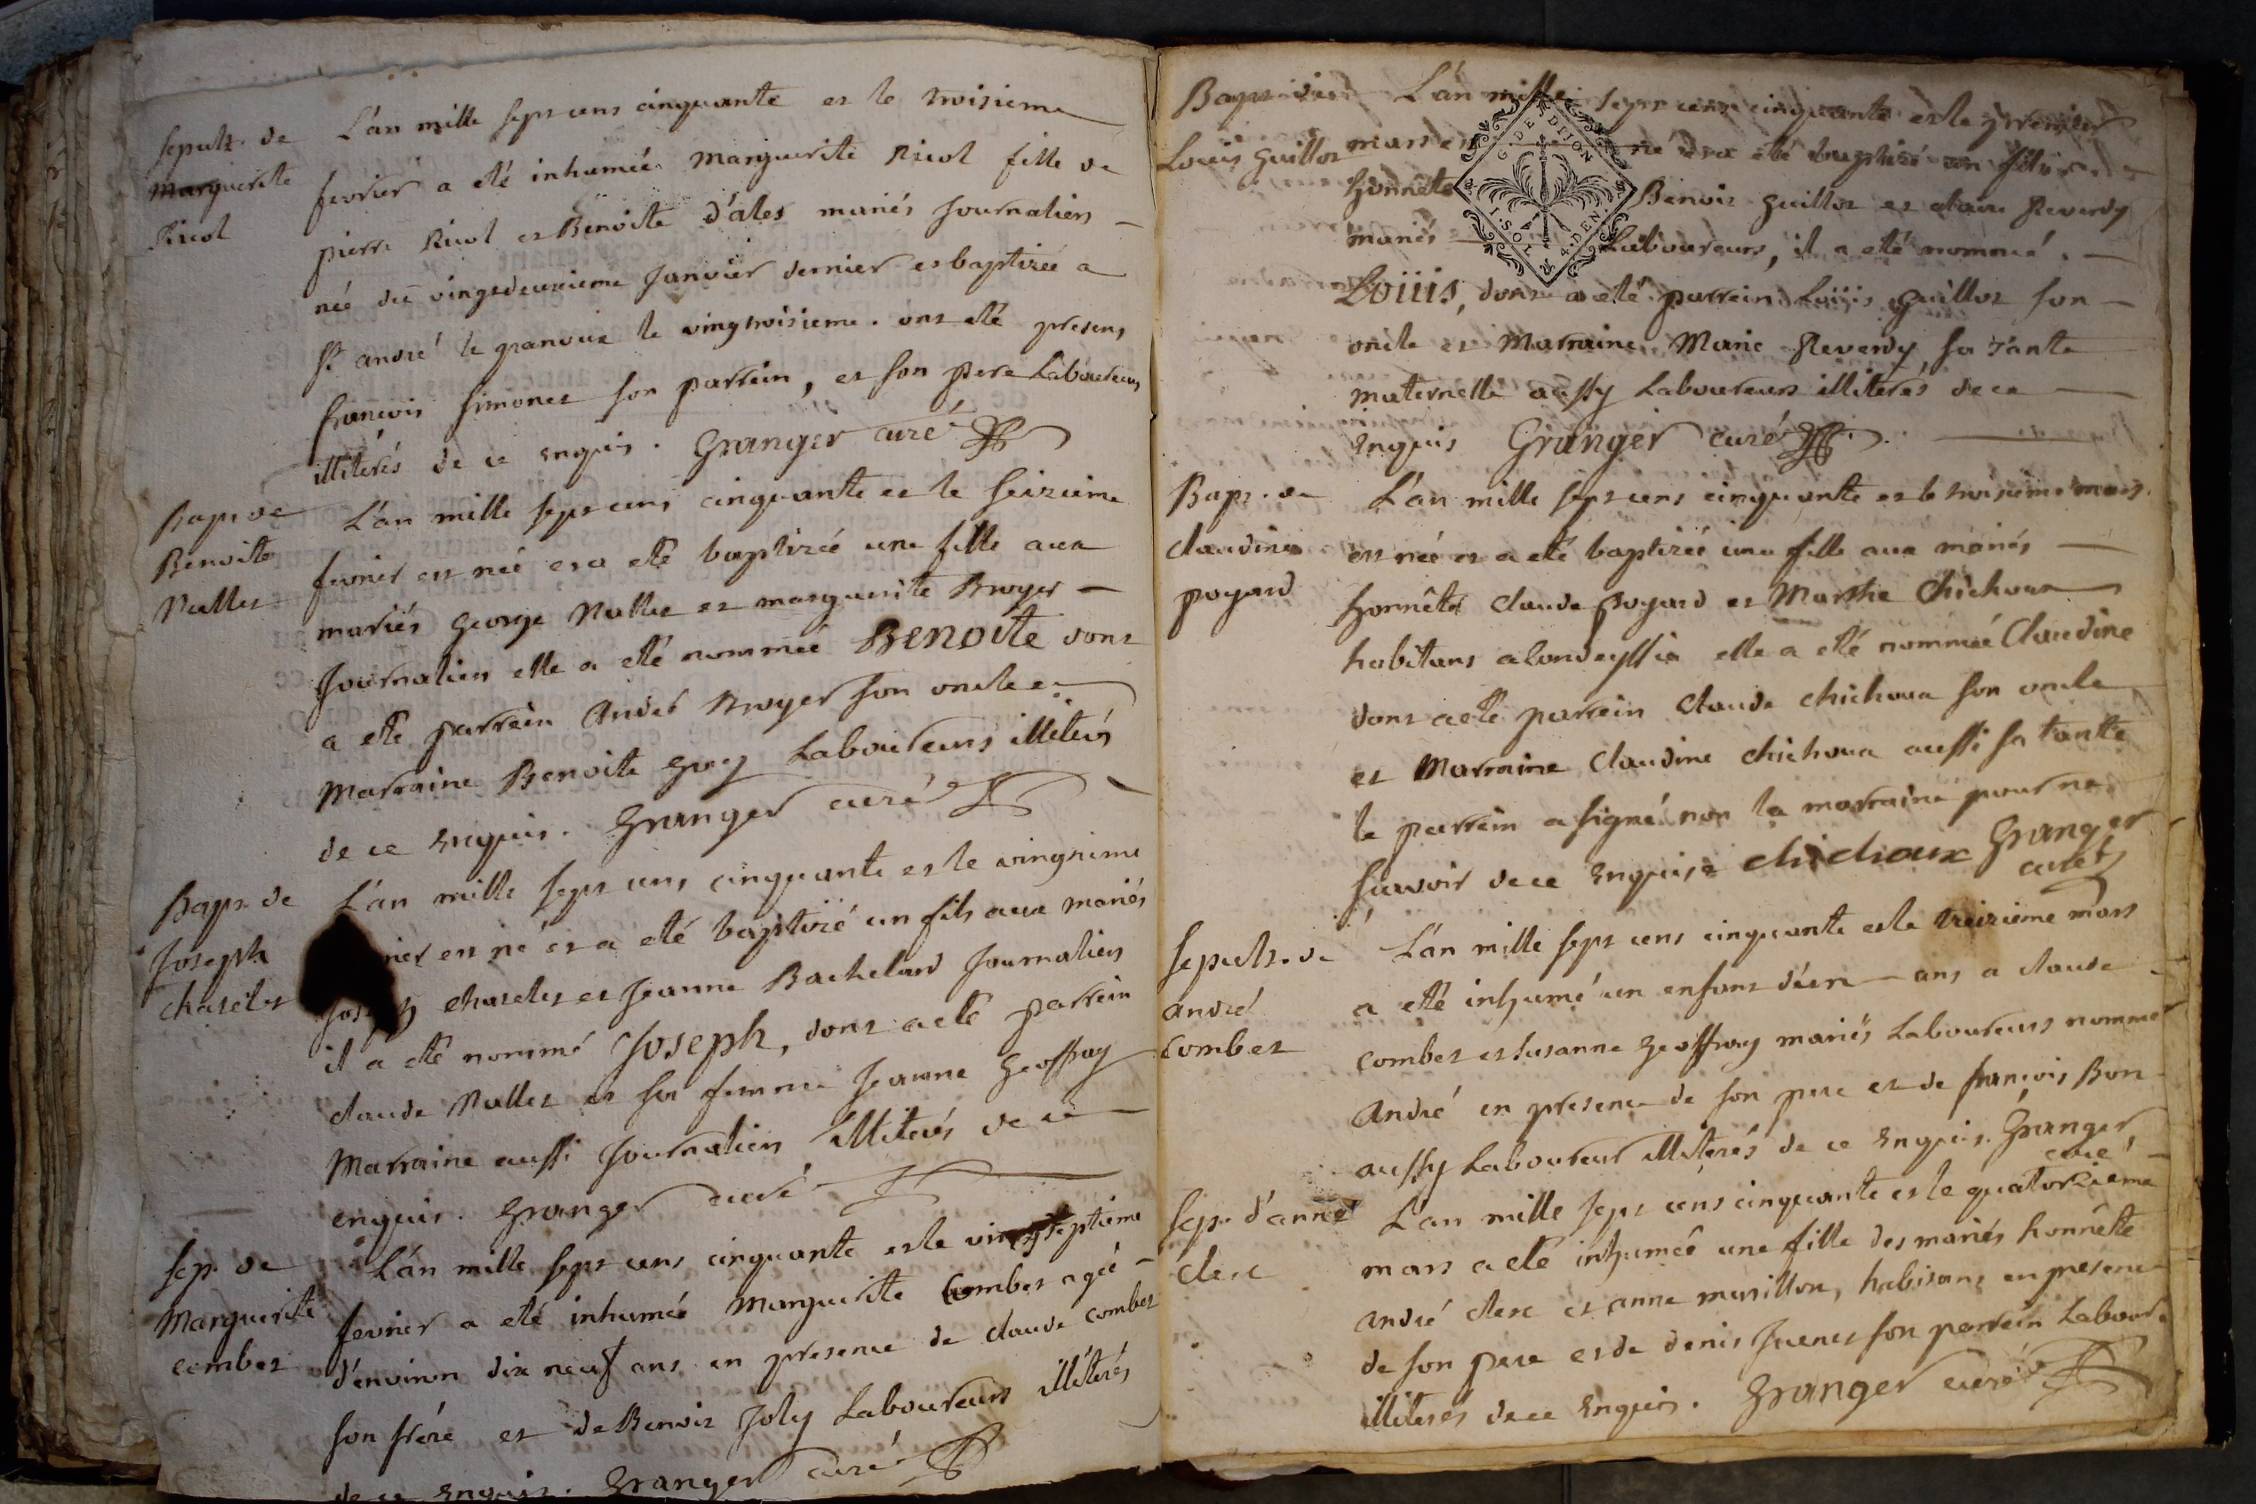 Sepult. de
Marguerite
Ricol
L'an mille sept cens cinquante et le troisieme
fevrier a eté inhumée Marguerite Ricol fille de
pierre Ricol et Benoite d'ales mariés Journaliers
née du vingtdeuxieme Janvier dernier et baptizée a
St andré le le vingtroisieme. ont eté presens
francois simonet son parrein, et son pere Laboureurs
illiterés de ce enquis. Granger curé
Bapt de
Benoite
Nallet
L'an mille sept cens cinquante et le seizieme
fevrier est née et a eté baptizée une fille aux
mariés George Nallet et marguerite Broyer
Journaliers elle a eté nommée BENOITE dont
a eté parrein André Broyer son oncle et
Marraine Benoite Laboureurs illiterés
de ce enquis. Granger curé
Bapt. de
Joseph
chaselet
L'an mille sept cens cinquante et le vingtieme
est né et a eté baptizé un fils aux mariés
Joseph chaselet et Jeanne Bachelard Journaliers
il a eté nommé Joseph, dont a eté parrein
claude Nallet et sa femme Jeanne Geoffray
Marraine aussi Journaliers illiterés de ce
enquis. Granger curé
Sep. de
Marguerite
combet
L'an mille sept cens cinquante et le vingtseptieme
fevrier a eté inhumée Marguerite Combet agée
d'environ dix neuf ans en presence de claude combet
son frére et de Benoit Joly Laboureurs illiterés
de ce enquis. Granger curé
Bapt. de
Louis Guillot
L'an mille sept cens cinquante et le premier
mars est né et a eté baptizé un fils
honnête Benoit Guillot et claire Reverdy
mariés Laboureurs, il a eté nommé
LOUIS, dont a eté parrein Louis Guillot son
oncle et Marraine Marie Reverdy sa tante
maternelle aussy Laboureurs illiterés de ce
enquis Granger curé
G. DE DIJON
I. SOL 4. DEN.
Bapt. de
claudine
poyard
L'an mille sept cens cinquante et le troisieme mars
est née et a eté baptizée une fille aux mariés
honnêtes claude poyard et Marthe Chichoux
habitans a elle a eté nommée Claudine
dont a eté parrein claude chichoux son oncle
et Marraine Claudine chichoux aussi sa tante
le parrein a signé non la marraine pour ne
sçavoir de ce enquise chichoux Granger
curé
Sepult. de
andré
combet
L'an mille sept cens cinquante et le treizieme mars
a eté inhumé un enfant d'un ans a claude
combet et susanne Geoffray mariés Laboureurs nommé
André en presence de son pere et de françois Bon
aussy Laboureur illiterés de ce enquis. Granger
curé
Sep. d'anne
clerc
L'an mille sept cens cinquante et le quatorzieme
mars a eté inhumée une fille des mariés honnête
andré clerc et anne murillon, habitans en presence
de son pere et de denis Juenet son parrein Labour.
illiterés de ce enquis. Granger curé